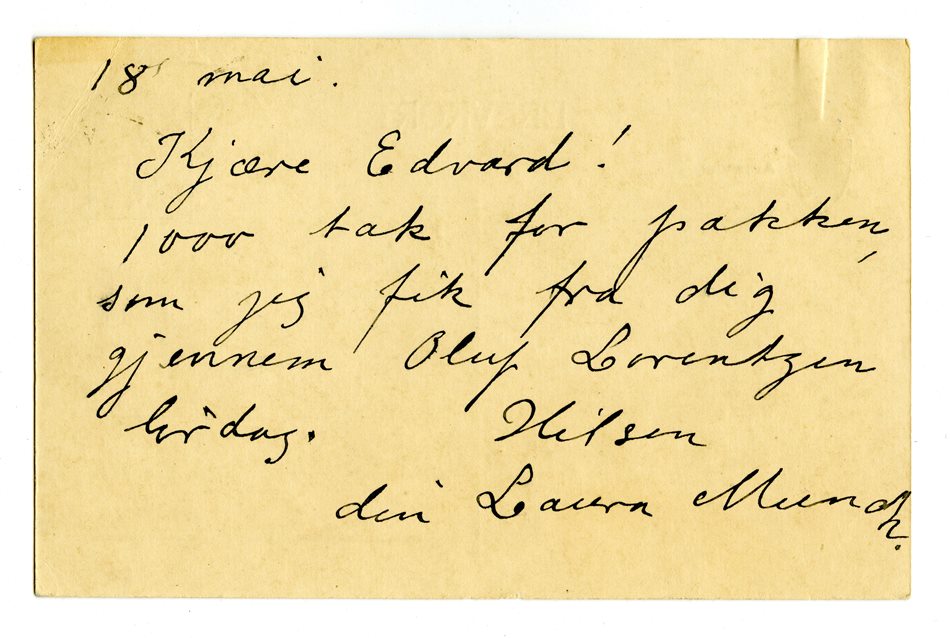 18 mai.
Kjære Edvard!
1000 tak for pakken,
som jeg fik fra dig
gjennem Oluf Lorentzen
lördag. Hilsen
din Laura Munch.